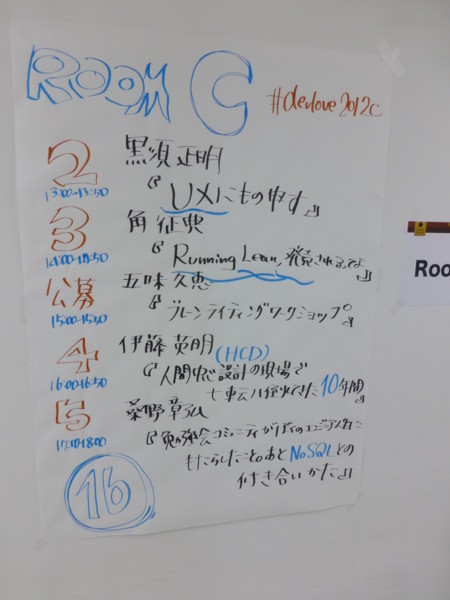 ROOM C
#devlove2012c
2
13:00-13:50
黒須正明
『UXにもの申す』
3
14:00-14:50
角 征典
『Running Lean, 発売されるってよ』
公募
15:00-15:50
五味久恵
『ブレーンライティングワークショップ』
4
16:00-16:50
伊藤英明(HCD)
『人間中心設計の現場で
七転八倒してきた10年間』
5
17:10-18:00
桑野章弘
『勉強会コミュニティがぼくのエンジニア人生に
もたらしたこと。あとNoSQLとの
付き合いかた』
16
Roo